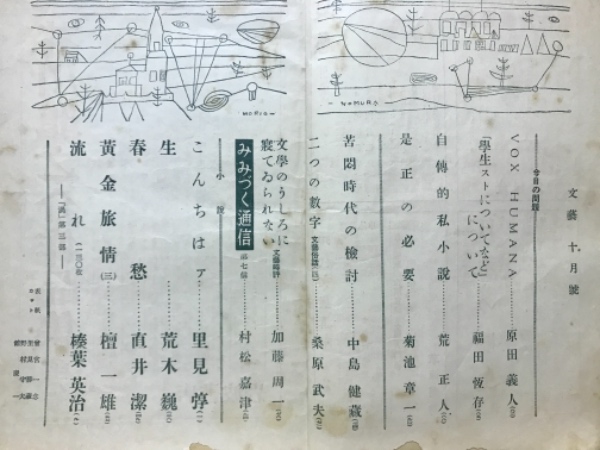 文藝 十月號
今日の問題
VOX HUMANA………原田義人
「學生ストについてなど」について………福田恆存
自傳的私小說………荒正人
是正の必要………菊池章一
苦悶時代の檢討………中島健蔵
二つの数字 文藝俗談(四)………桑原武夫
文學のうしろに寢てゐられない 文藝時評………加藤周一
みみづく通信 第七信………村松嘉津
小說
こんちはァ………里見弴
生………荒木巍
春愁………直井潔
黃金旅情(三)………檀一雄
流れ(一三〇枚)………榛葉英治
―「渦」第三部―
NOMURO
MORIO